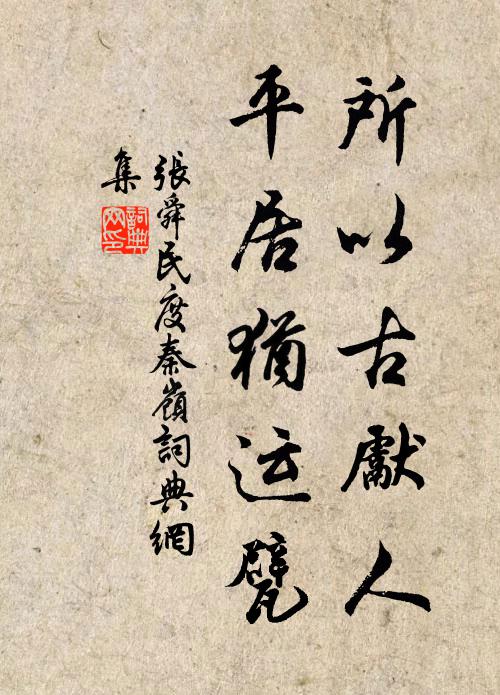 所以古獻人
平居猶运甓
張舜民度秦嶺詞典網
集
詞典
网印